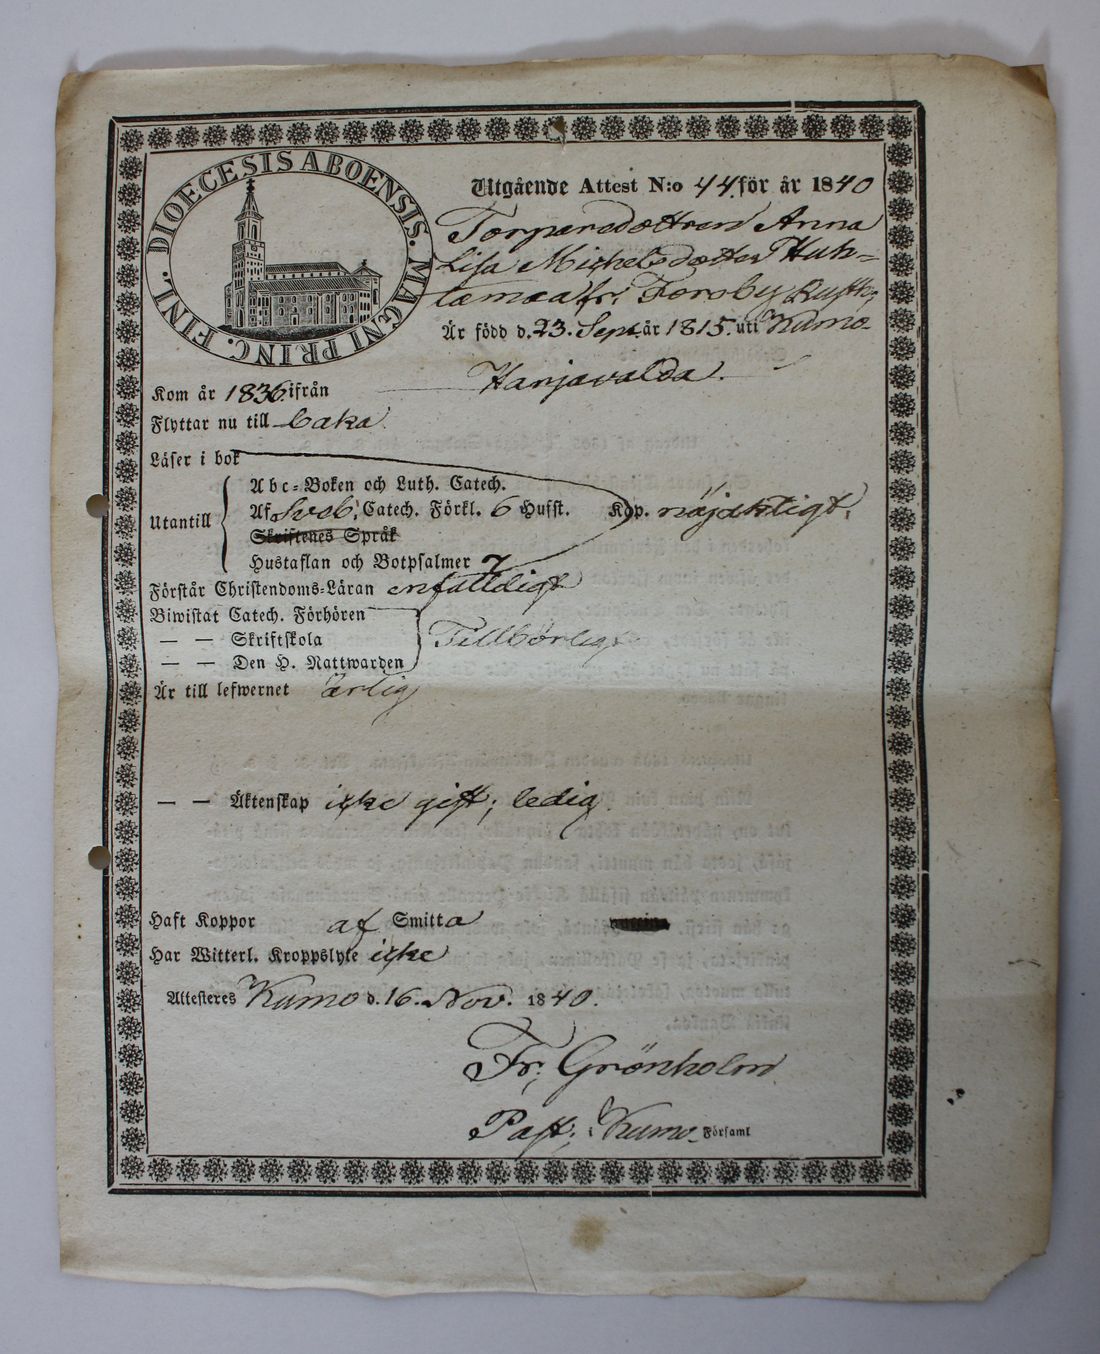 DIOECESIS ABOENSIS. MAGNI PRINC. FINL.
Utgående Attest N:o 44 för år 1840
Torparedottren Anna
Lisa Michelsdotter Huh-
tamaa fr. Forsby Rusth:
Är född d. 23. Sept. år 1815. uti Kumo
Kom år 1836 ifrån Harjavalda.
Flyttar nu till baka.
Läser i bok
Utantill
Abc-Boken och Luth. Catech.
Af Sveb. Catech. Förkl. 6 Hufst. Kap. nöjaktigt.
Skriftenes Språk
Hustaflan och Botpsalmer 7
Förstår Christendoms-Läran enfaldigt
Biwistat Catech. Förhören
— — Skriftskola Tillbörligt
— — Den H. Nattwarden
Är till lefwernet ärlig
— — Äktenskap icke gift; ledig
Haft Koppor af Smitta
Har Witterl. Kroppslyte icke
Attesteres Kumo d. 16. Nov. 1840.
Fr. Grönholm
Past. i Kumo Församl